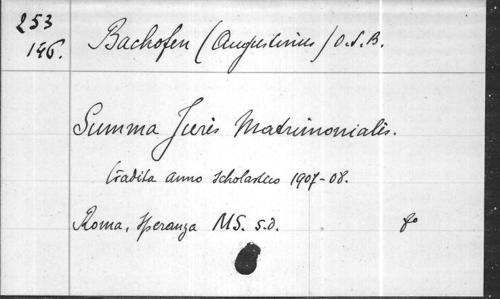 253
146.
Bachofen (Augustinus) O.S.B.
Summa Juris Matrimonialis.
tradita anno scholastico 1907-08.
Roma, Speranza MS. s.d. fo